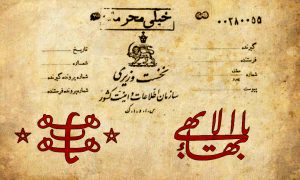 خیلی محرمانه
00280055
گیرنده
فرستنده
شماره پرونده گیرنده
پیوست
تاریخ
شماره
شماره پرونده فرستنده
نخست وزیری
سازمان اطلاعات و امنیت کشور
س.ا.و.ا.ک
یا بهاء الابهی